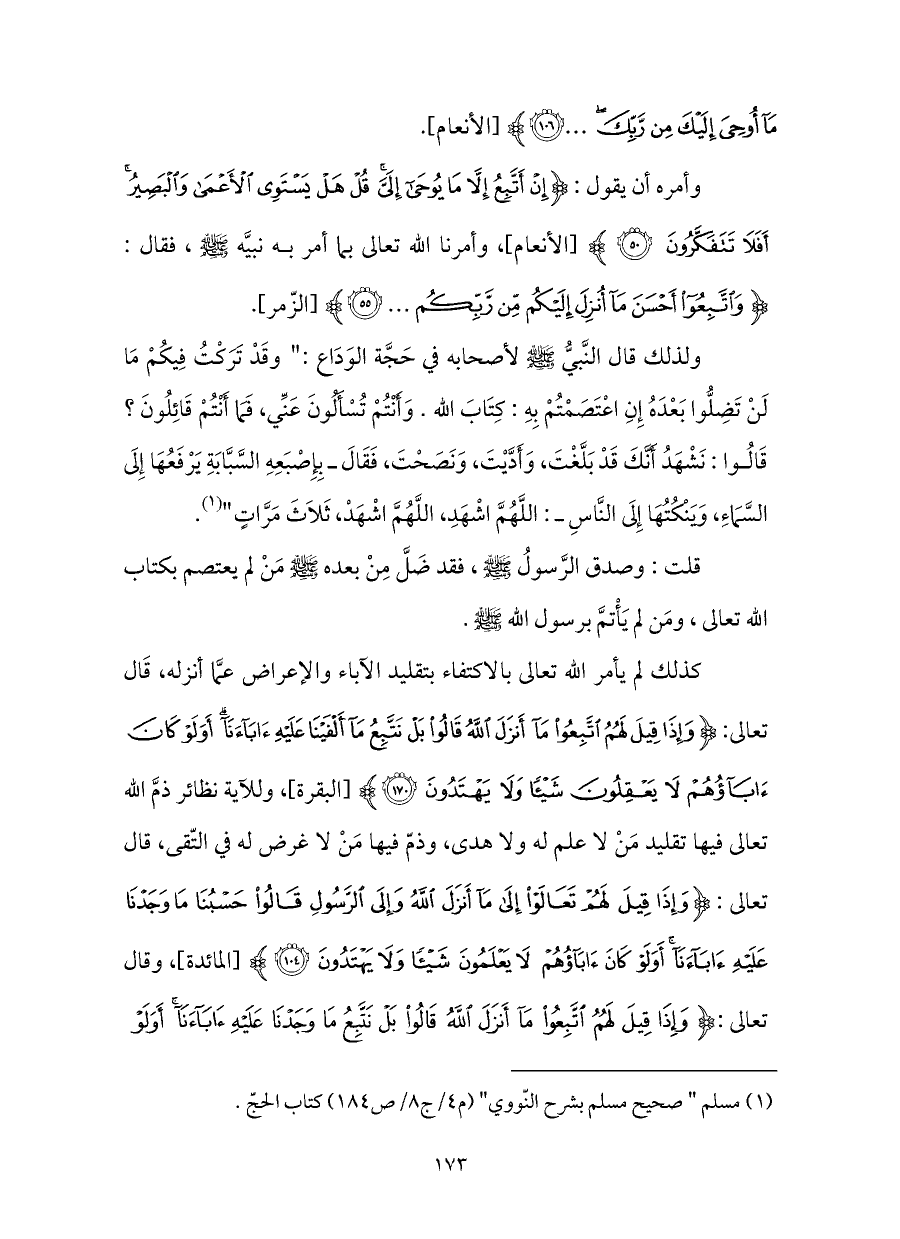 مَآ أُوحِيَ إِلَيۡكَ مِن رَّبِّكَۖ ...﴿١٠٦﴾ ﴾ [الأنعام].
وأمره أن يقول : ﴿ إِنۡ أَتَّبِعُ إِلَّا مَا يُوحَىٰٓ إِلَيَّۚ قُلۡ هَلۡ يَسۡتَوِي ٱلۡأَعۡمَىٰ وَٱلۡبَصِيرُۚ
أَفَلَا تَتَفَكَّرُونَ ﴿٥٠﴾ ﴾ [الأنعام]، وأمرنا الله تعالى بما أمر بـه نبيَّه ﷺ ، فقال :
﴿ وَٱتَّبِعُوٓاْ أَحۡسَنَ مَآ أُنزِلَ إِلَيۡكُم مِّن رَّبِّكُم ... ﴿٥٥﴾ ﴾ [الزّمر].
ولذلك قال النَّبيُّ ﷺ لأصحابه في حَجَّة الوَدَاع :" وقَدْ تَرَكْتُ فِيكُمْ مَا
لَنْ تَضِلُّوا بَعْدَهُ إِنِ اعْتَصَمْتُمْ بِهِ : كِتَابَ الله . وَأَنْتُمْ تُسْأَلُونَ عَنِّي، فَمَا أَنْتُمْ قَائِلُونَ ؟
قَالُـوا : نَشْهَدُ أَنَّكَ قَدْ بَلَّغْتَ، وَأَدَّيْتَ، وَنَصَحْتَ، فَقَالَ ـ بِإِصْبَعِهِ السَّبَّابَةِ يَرْفَعُهَا إِلَى
السَّمَاءِ، وَيَنْكُتُهَا إِلَى النَّاسِ ـ : اللَّهُمَّ اشْهَدِ، اللَّهُمَّ اشْهَدْ، ثَلاَثَ مَرَّاتٍ "(١).
قلت : وصدق الرَّسولُ ﷺ ، فقد ضَلَّ مِنْ بعده ﷺ مَنْ لم يعتصم بكتاب
الله تعالى ، ومَن لم يَأْتمَّ برسول الله ﷺ .
كذلك لم يأمر الله تعالى بالاكتفاء بتقليد الآباء والإعراض عمَّا أنزله، قَال
تعالى: ﴿ وَإِذَا قِيلَ لَهُمُ ٱتَّبِعُواْ مَآ أَنزَلَ ٱللَّهُ قَالُواْ بَلۡ نَتَّبِعُ مَآ أَلۡفَيۡنَا عَلَيۡهِ ءَابَآءَنَآۗ أَوَلَوۡ كَانَ
ءَابَآؤُهُمۡ لَا يَعۡقِلُونَ شَيۡـٔٗا وَلَا يَهۡتَدُونَ ﴿١٧٠﴾ ﴾ [البقرة]، وللآية نظائر ذمَّ الله
تعالى فيها تقليد مَنْ لا علم له ولا هدى، وذمّ فيها مَنْ لا غرض له في التّقى، قال
تعالى : ﴿ وَإِذَا قِيلَ لَهُمۡ تَعَالَوۡاْ إِلَىٰ مَآ أَنزَلَ ٱللَّهُ وَإِلَى ٱلرَّسُولِ قَالُواْ حَسۡبُنَا مَا وَجَدۡنَا
عَلَيۡهِ ءَابَآءَنَآۚ أَوَلَوۡ كَانَ ءَابَآؤُهُمۡ لَا يَعۡلَمُونَ شَيۡـٔٗا وَلَا يَهۡتَدُونَ ﴿١٠٤﴾ ﴾ [المائدة]، وقال
تعالى :﴿ وَإِذَا قِيلَ لَهُمُ ٱتَّبِعُواْ مَآ أَنزَلَ ٱللَّهُ قَالُواْ بَلۡ نَتَّبِعُ مَا وَجَدۡنَا عَلَيۡهِ ءَابَآءَنَآۚ أَوَلَوۡ
(١) مسلم " صحيح مسلم بشرح النّووي" (م٤/ ج٨/ ص١٨٤) كتاب الحجّ .
١٧٣